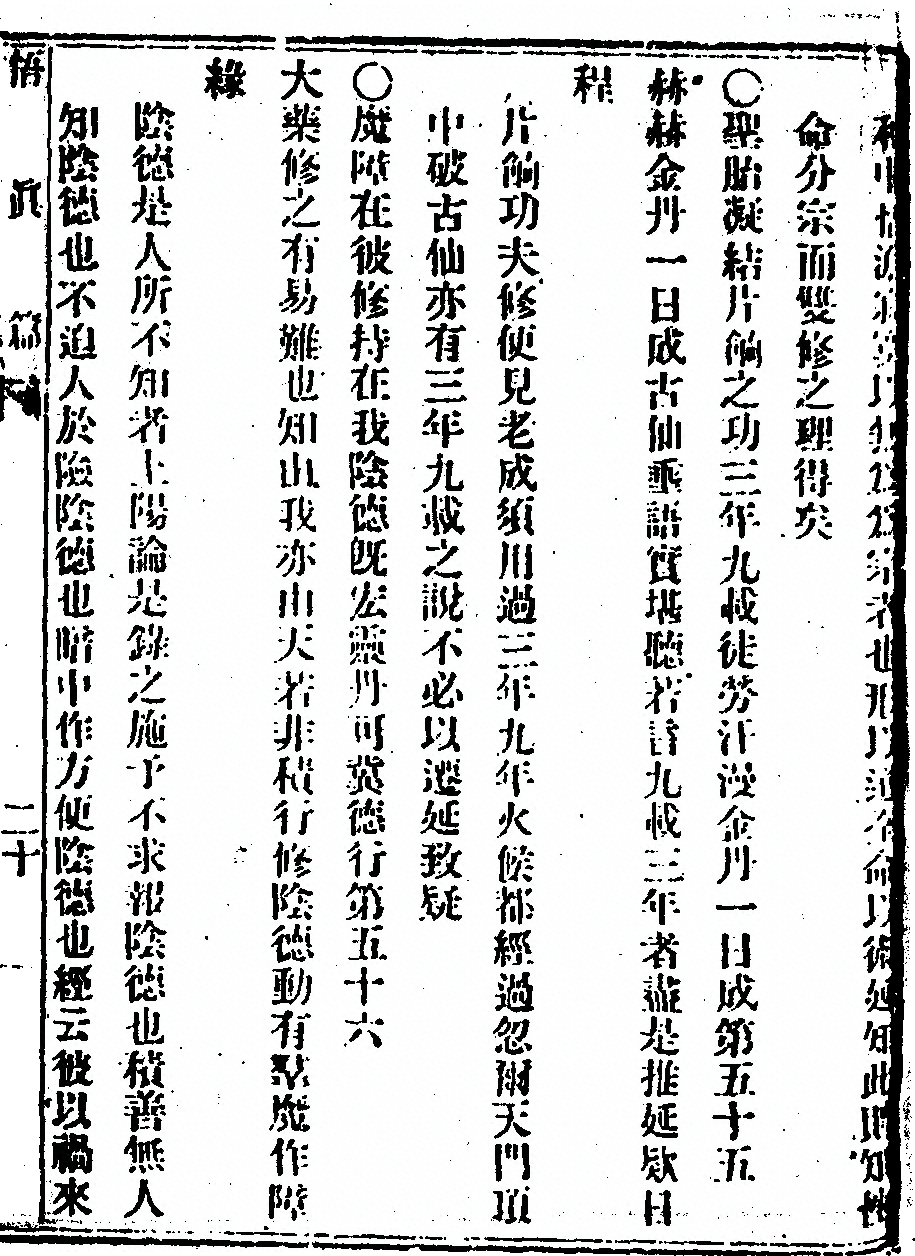 以 爲宗者也形以 命以術延知此則知性
命分宗而雙修之理得矣
〇聖胎凝結片餉之功三年九載徒勞汗漫金丹一日成第五十五
赫赫金丹一日成古仙垂語實堪聽若言九載三年者盡是推延欵日
程
片餉功夫修便見老成須用過三年九年火候都經過忽爾天門頂
中破古仙亦有三年九載之說不必以遷延致疑
〇魔障在彼修持在我陰德既宏靈丹可冀德行第五十六
大藥修之有易難也知由我亦由天若非積行修陰德動有羣魔作障
緣
陰德是人所不知者上陽論是錄之施予不求報陰德也積善無人
知陰德也不迫人於險陰德也暗中作方便陰德也經云彼以禍來
悟真篇
二十